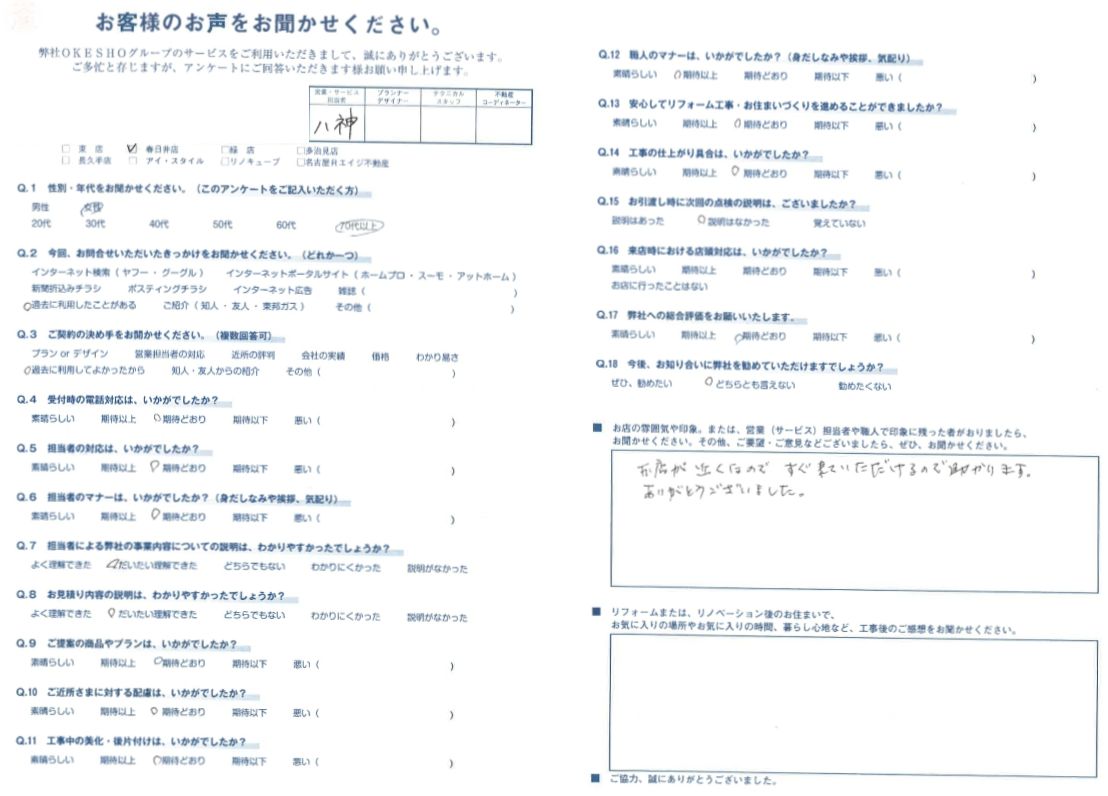 お客様のお声をお聞かせください。
弊社OKESHOグループのサービスをご利用いただきまして、誠にありがとうございます。
ご多忙と存じますが、アンケートにご回答いただきます様お願い申し上げます。
営業・サービス担当者 プランナーデザイナー テクニカルスタッフ 不動産コーディネーター
八神
□ 東 店 ☑ 春日井店 □緑 店 □多治見店
□ 長久手店 □ アイ・スタイル □リノキューブ □名古屋Rエイジ不動産
Q.1 性別・年代をお聞かせください。(このアンケートをご記入いただく方)
男性 女性
20代 30代 40代 50代 60代 70代以上
Q.2 今回、お問合せいただいたきっかけをお聞かせください。(どれか一つ)
インターネット検索(ヤフー・グーグル) インターネットポータルサイト(ホームプロ・スーモ・アットホーム)
新聞折込みチラシ ポスティングチラシ インターネット広告 雑誌( )
○過去に利用したことがある ご紹介(知人・友人・東邦ガス) その他( )
Q.3 ご契約の決め手をお聞かせください。(複数回答可)
プラン or デザイン 営業担当者の対応 近所の評判 会社の実績 価格 わかり易さ
○過去に利用してよかったから 知人・友人からの紹介 その他( )
Q.4 受付時の電話対応は、いかがでしたか?
素晴らしい 期待以上 ○期待どおり 期待以下 悪い( )
Q.5 担当者の対応は、いかがでしたか?
素晴らしい 期待以上 ○期待どおり 期待以下 悪い( )
Q.6 担当者のマナーは、いかがでしたか?(身だしなみや挨拶、気配り)
素晴らしい 期待以上 ○期待どおり 期待以下 悪い( )
Q.7 担当者による弊社の事業内容についての説明は、わかりやすかったでしょうか?
よく理解できた ○だいたい理解できた どちらでもない わかりにくかった 説明がなかった
Q.8 お見積り内容の説明は、わかりやすかったでしょうか?
よく理解できた ○だいたい理解できた どちらでもない わかりにくかった 説明がなかった
Q.9 ご提案の商品やプランは、いかがでしたか?
素晴らしい 期待以上 ○期待どおり 期待以下 悪い( )
Q.10 ご近所さまに対する配慮は、いかがでしたか?
素晴らしい 期待以上 ○期待どおり 期待以下 悪い( )
Q.11 工事中の美化・後片付けは、いかがでしたか?
素晴らしい 期待以上 ○期待どおり 期待以下 悪い( )
Q.12 職人のマナーは、いかがでしたか?(身だしなみや挨拶、気配り)
素晴らしい ○期待以上 期待どおり 期待以下 悪い( )
Q.13 安心してリフォーム工事・お住まいづくりを進めることができましたか?
素晴らしい 期待以上 ○期待どおり 期待以下 悪い( )
Q.14 工事の仕上がり具合は、いかがでしたか?
素晴らしい 期待以上 ○期待どおり 期待以下 悪い( )
Q.15 お引渡し時に次回の点検の説明は、ございましたか?
説明はあった ○説明はなかった 覚えていない
Q.16 来店時における店頭対応は、いかがでしたか?
素晴らしい 期待以上 期待どおり 期待以下 悪い( )
お店に行ったことはない
Q.17 弊社への総合評価をお願いいたします。
素晴らしい 期待以上 ○期待どおり 期待以下 悪い( )
Q.18 今後、お知り合いに弊社を勧めていただけますでしょうか?
ぜひ、勧めたい ○どちらとも言えない 勧めたくない
■ お店の雰囲気や印象。または、営業(サービス)担当者や職人で印象に残った者がおりましたら、
お聞かせください。その他、ご要望・ご意見などございましたら、ぜひ、お聞かせください。
お店が近くなので すぐ来ていただけるので助かります。
ありがとうございました。
■ リフォームまたは、リノベーション後のお住まいで、
お気に入りの場所やお気に入りの時間、暮らし心地など、工事後のご感想をお聞かせください。
■ ご協力、誠にありがとうございました。